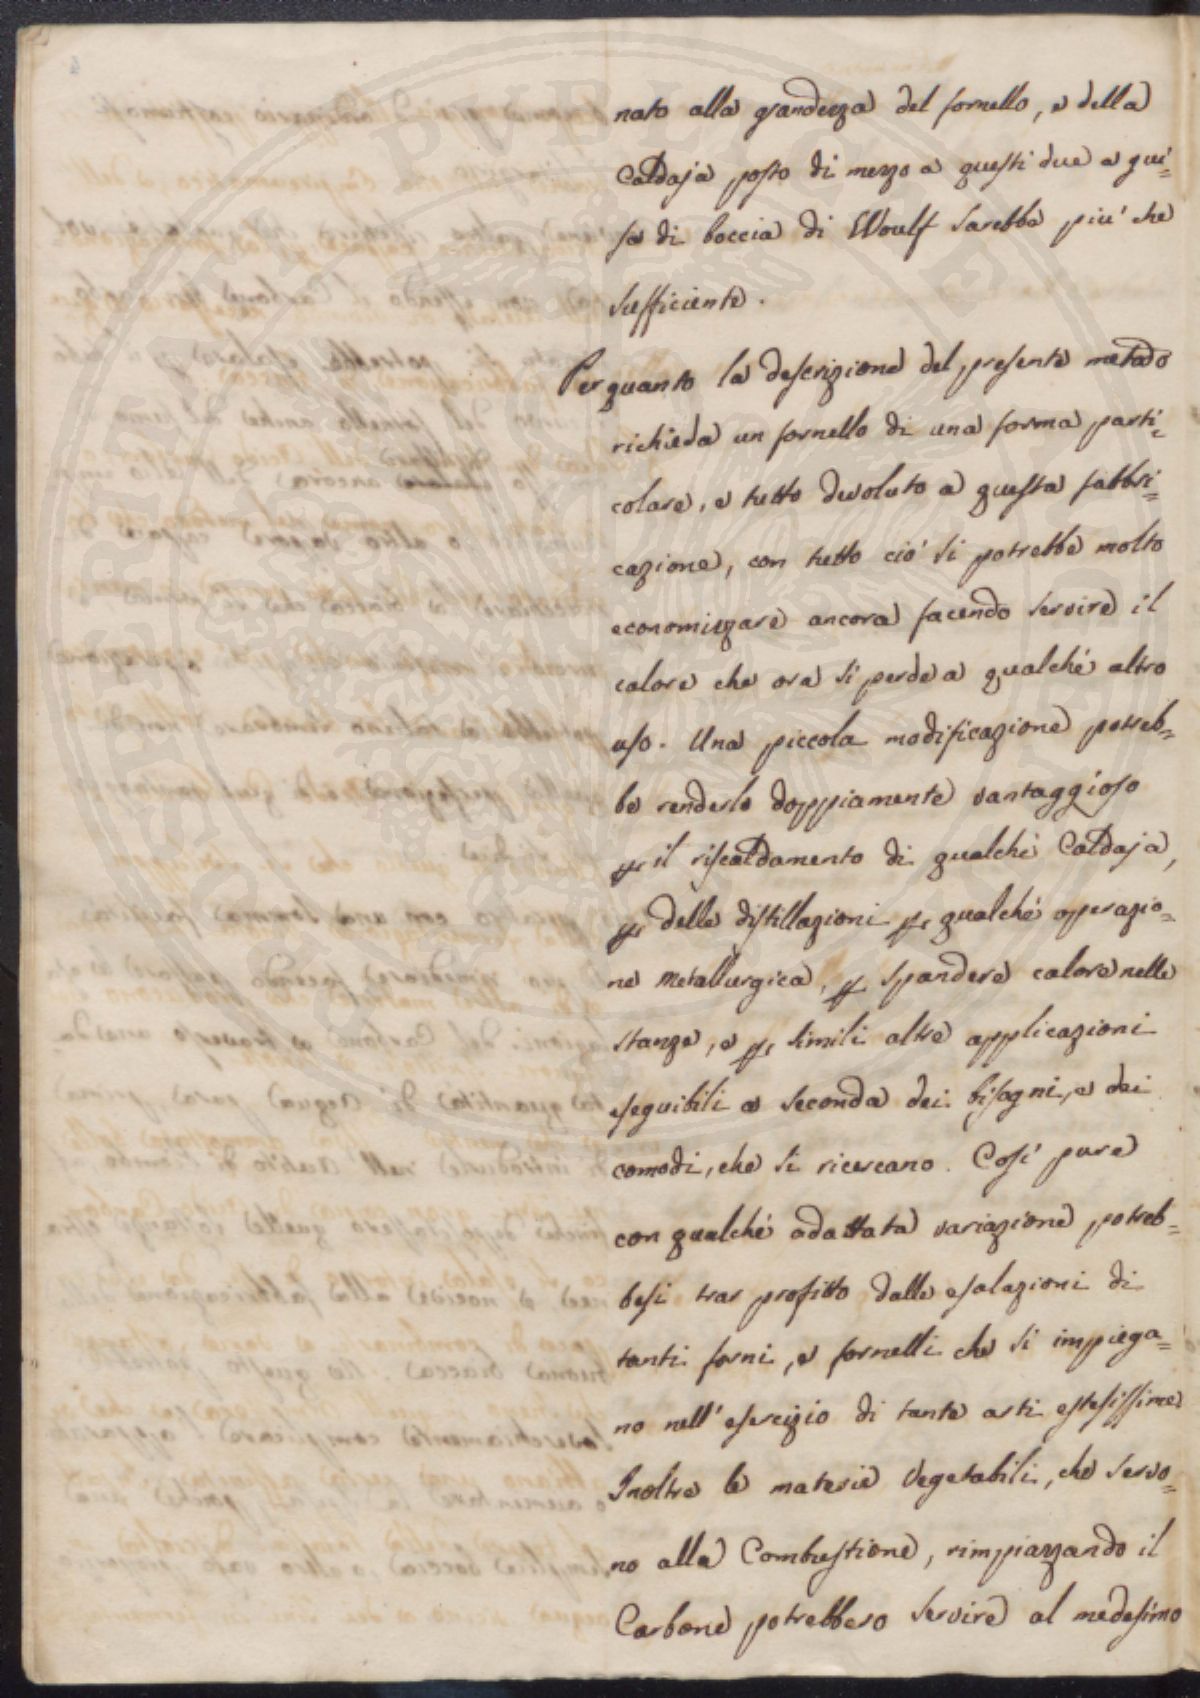 nato alla grandezza del fornello, e della
Caldaja posto di mezzo a questi due a gui=
sa di boccia di Woulf sarebbe piu' che
sufficiente.
Per quanto la descrizione del presente metodo
richieda un fornello di una forma parti=
colare, e tutto devoluto a questa fabbri=
cazione, con tutto ciò si potrebbe molto
economizzare ancora facendo servire il
calore che ora si perde a qualche altro
uso. Una piccola modificazione potreb=
be renderlo doppiamente vantaggioso
per il riscaldamento di qualche Caldaja,
per delle distillazioni per qualche operazio=
ne metallurgica, per spandere calore nelle
stanze, e per simili altre applicazioni
eseguibili a seconda dei bisogni, e dei
comodi, che si ricercano. Così pure
con qualche adattata variazione potreb=
besi trar profitto dalle esalazioni di
tanti forni, e fornelli che si impiega=
no nell' esercizio di tante arti estesissime
Inoltre le materie vegetabili, che servo=
no alla Combustione, rimpiazzando il
Carbone potrebbero servire al medesimo